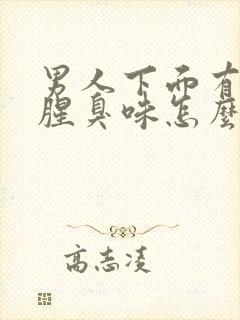 男人下面有
腥臭味怎么
高志凌